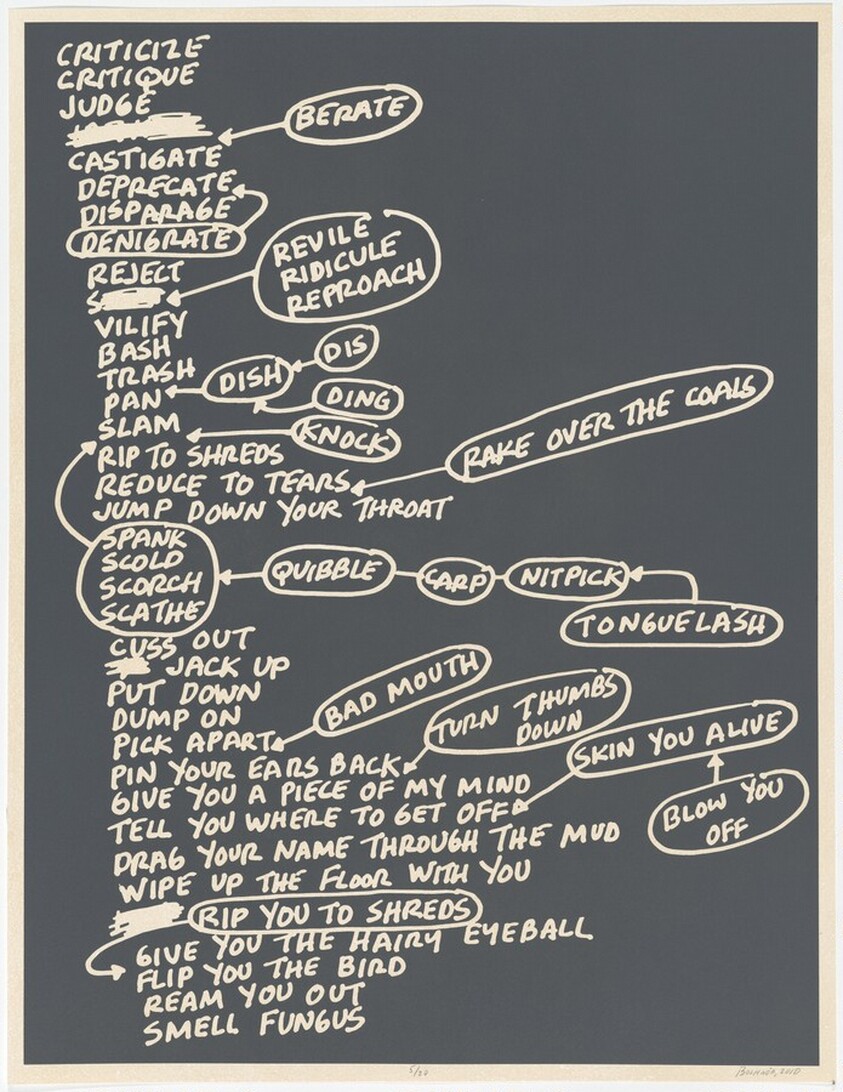 CRITICIZE
CRITIQUE
JUDGE
BERATE
CASTIGATE
DEPRECATE
DISPARAGE
DENIGRATE
REJECT
S
REVILE
RIDICULE
REPROACH
VILIFY
BASH
TRASH
DIS
DISH
PAN
DING
SLAM
KNOCK
RIP TO SHREDS
RAKE OVER THE COALS
REDUCE TO TEARS
JUMP DOWN YOUR THROAT
SPANK
SCOLD
SCORCH
SCATHE
QUIBBLE
CARP
NITPICK
TONGUELASH
CUSS OUT
JACK UP
PUT DOWN
DUMP ON
PICK APART
BAD MOUTH
PIN YOUR EARS BACK
TURN THUMBS
DOWN
GIVE YOU A PIECE OF MY MIND
TELL YOU WHERE TO GET OFF
SKIN YOU ALIVE
BLOW YOU
OFF
DRAG YOUR NAME THROUGH THE MUD
WIPE UP THE FLOOR WITH YOU
RIP YOU TO SHREDS
GIVE YOU THE HAIRY EYEBALL
FLIP YOU THE BIRD
REAM YOU OUT
SMELL FUNGUS